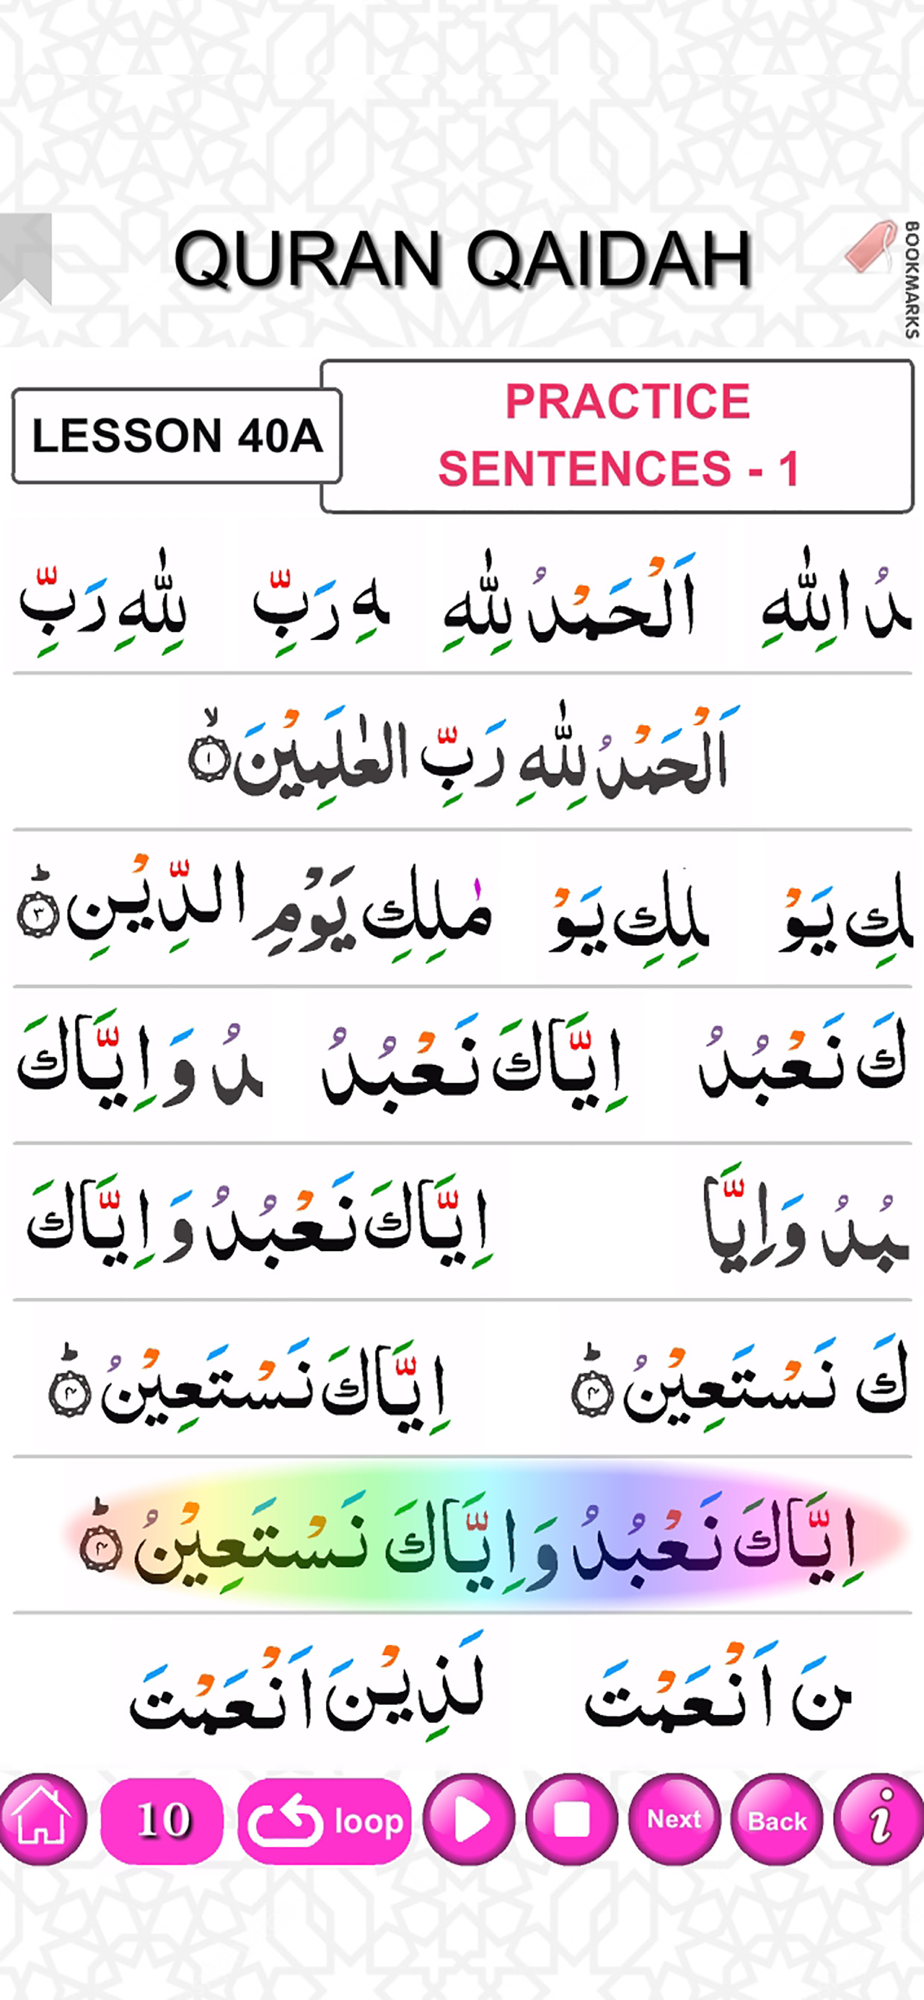 QURAN QAIDAH
BOOKMARKS
LESSON 40A
PRACTICE
SENTENCES - 1
دُ اللّٰهِ اَلْحَمْدُ لِلّٰهِ هِ رَبِّ لِلّٰهِ رَبِّ
اَلْحَمْدُ لِلّٰهِ رَبِّ الْعٰلَمِيْنَ ۙ‏﴿۱﴾
لِكِ يَوْ لِلِكِ يَوْ مٰلِكِ يَوْمِ الدِّيْنِ ؕ‏﴿۳﴾
كَ نَعْبُدُ اِيَّاكَ نَعْبُدُ دُ وَ اِيَّاكَ
بُدُ وَاِيَّا اِيَّاكَ نَعْبُدُ وَ اِيَّاكَ
كَ نَسْتَعِيْنُ ؕ‏﴿۴﴾ اِيَّاكَ نَسْتَعِيْنُ ؕ‏﴿۴﴾
اِيَّاكَ نَعْبُدُ وَ اِيَّاكَ نَسْتَعِيْنُ ؕ‏﴿۴﴾
نَ اَنْعَمْتَ لَذِيْنَ اَنْعَمْتَ
10 loop Next Back i